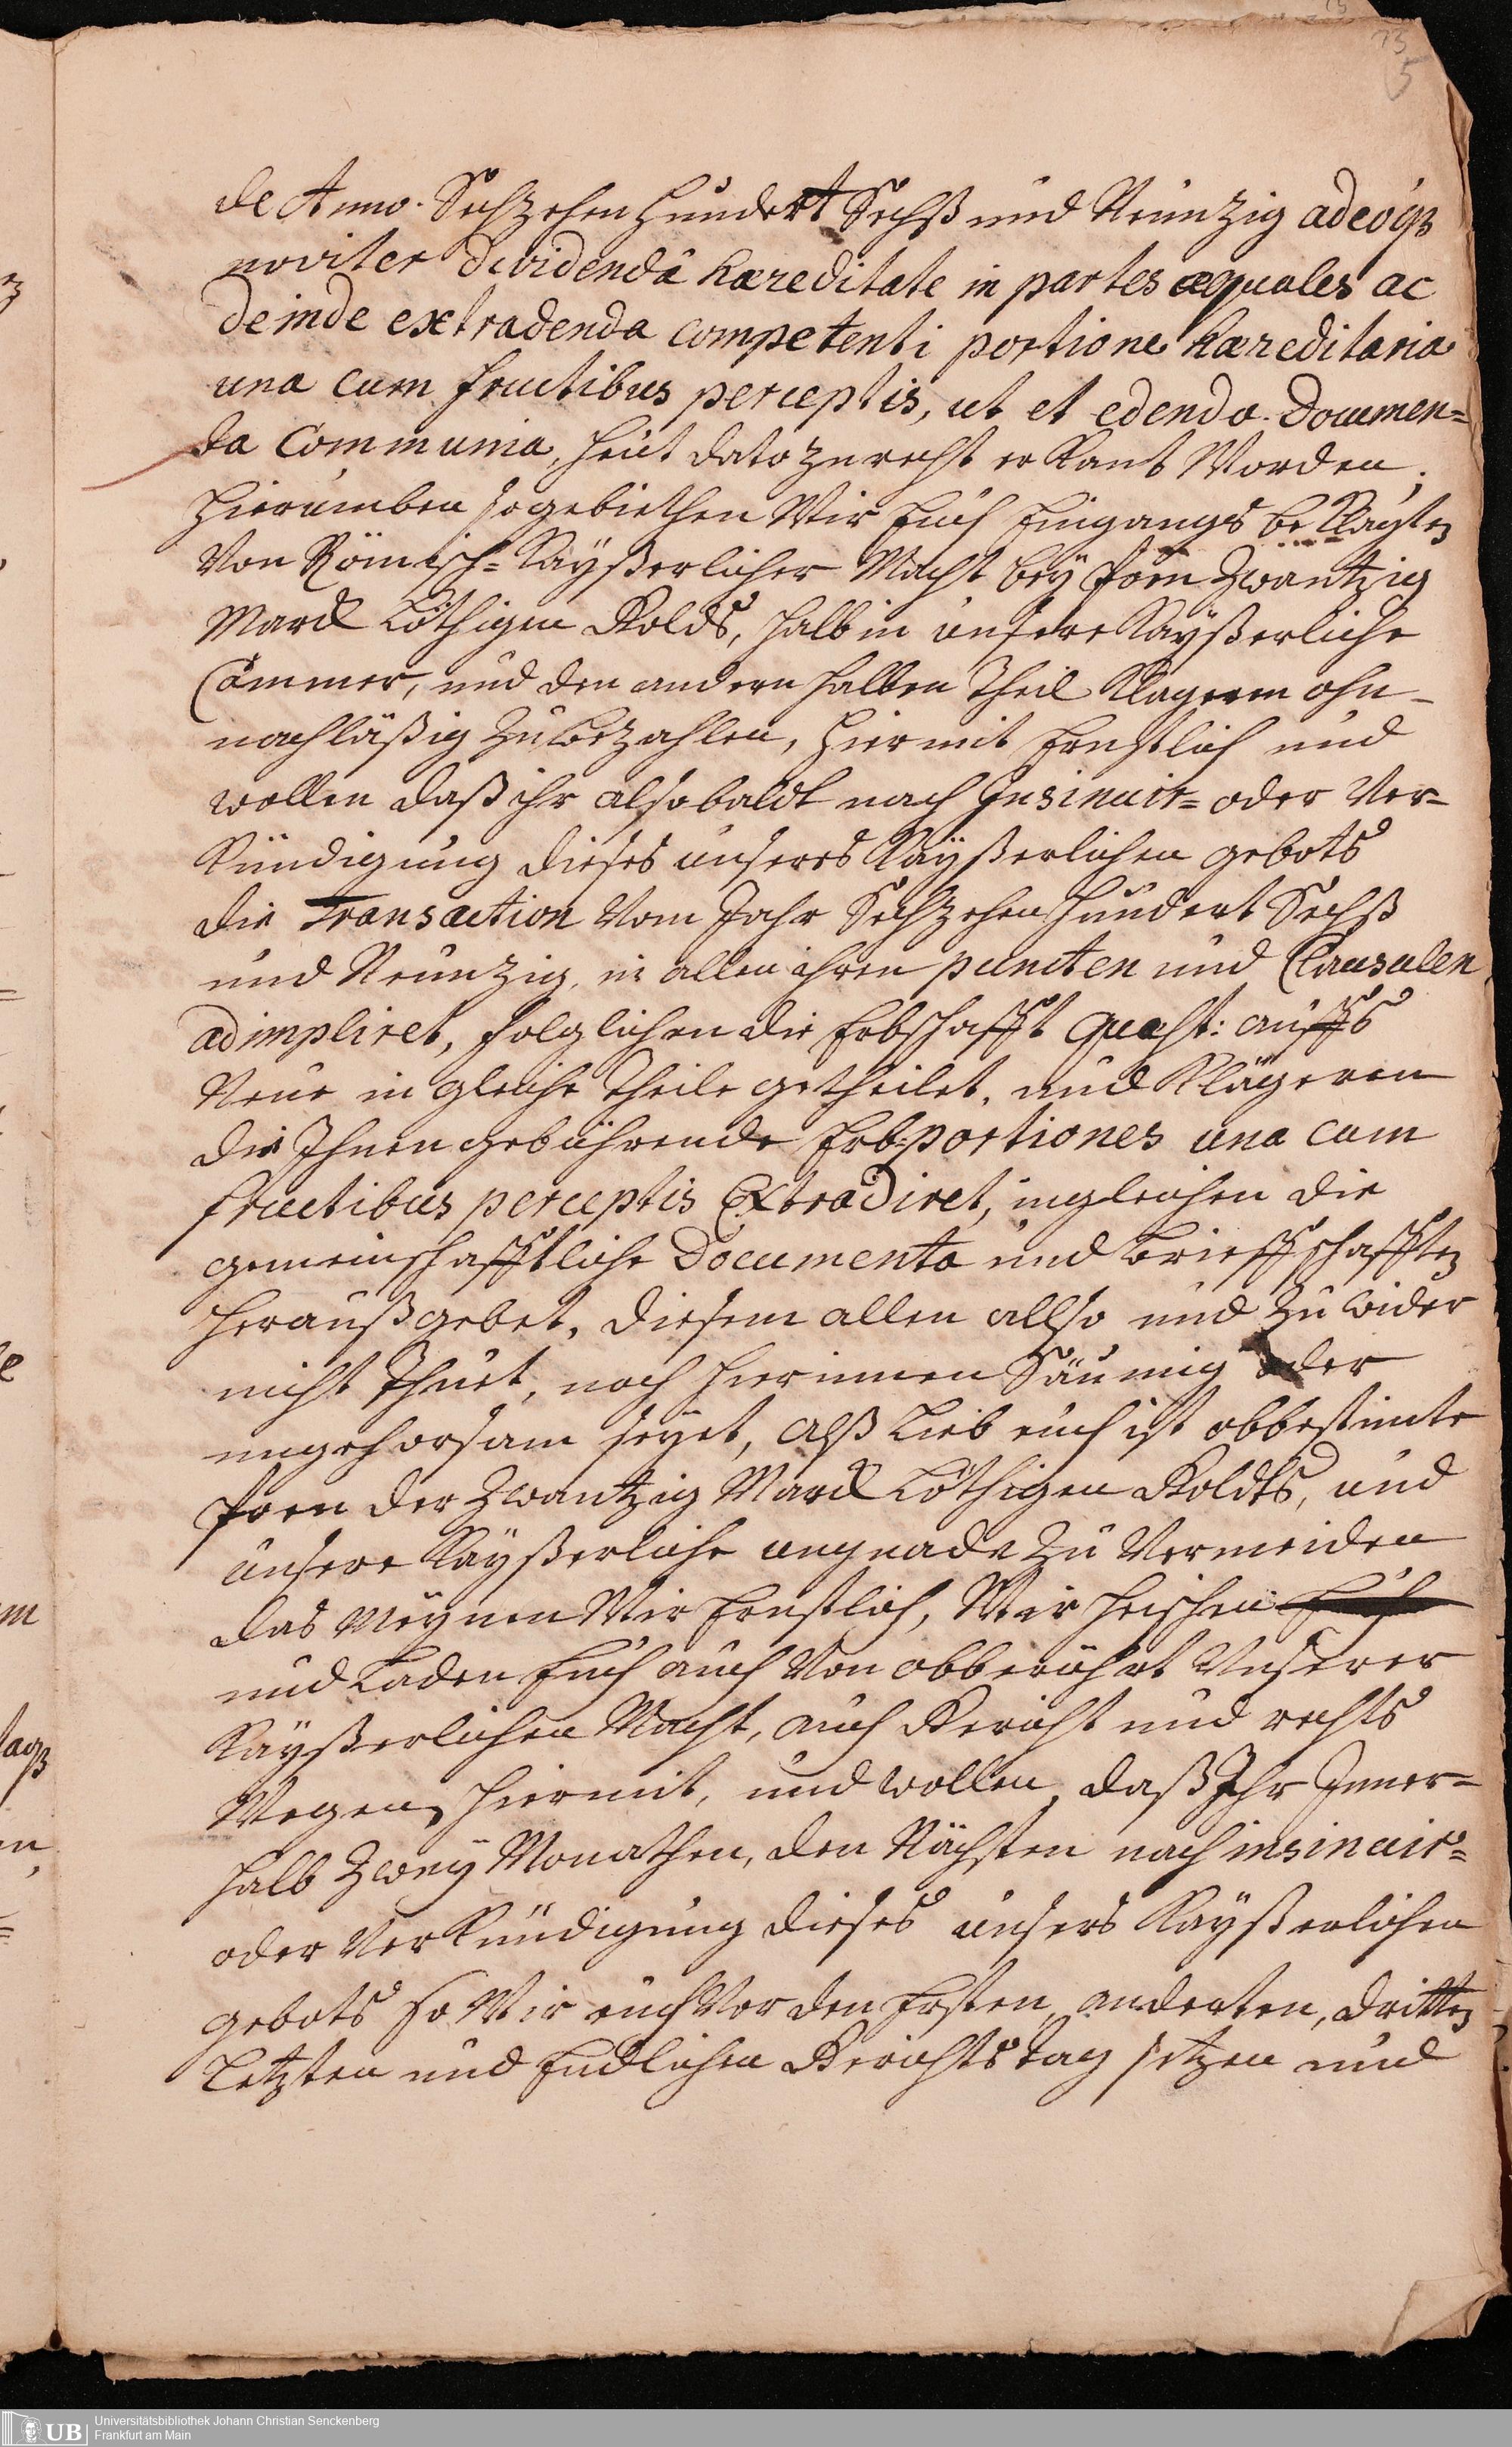 15
75
5
de Anno. Sechzehen Hundert Sechß und Neunzig adeoqз
noviter dividendâ hæreditate in partes æquales ac
deinde extradenda competenti portione hæreditaria
una cum fructibus perceptis, ut et edendo Documen=
ta Communia, heüt dato zu recht erkant Worden,
Hierumben so gebiethen Wir Euch Eingangs beklagten
Von Römisch=Kaÿßerlicher Macht beÿ Pöen Zwantzig
Marck Löthigen Golds, halb in unsere Kaÿßerliche
Cammer, und den anderen halben Theil Klageren ohn-
nachläßig zu bezahlen, hiermit Ernstlich und
wollen daß ihr alsobaldt nach Insinuir= oder Ver-
kündigung dieses unseres Kaÿßerlichen gebots
die Transaction Vom Jahr Sechzehen Hundert Sechß
und Neunzig, in allen ihren puncten und Clausulen
adimpliret, folglichen die Erbschafft quæst: auffs
Neue in gleiche Theile getheilet, und Klägeren
die Ihnen gebührende Erbportiones una cum
fructibus perceptis Extradiret, ingleichen die
gemeinschafftliche Documenta und Brieffschafften
herauß gebet, diesem allen allso und zu wider
nicht Thuet, noch hierinnen Säumig oder
ungehorsam seyet, alß Lieb euch ist obbestimte
Poen der Zwantzig Marck Löthigen Goldts, und
unsere Kaÿßerliche ungnade zu Vermeiden
das Meÿnen Wir Ernstlich, Wir heischen Euch
und Laden Euch auch Von obberührt Unserer
Kaÿßerlichen Macht, auch Gericht und rechts
Wegen, hiermit, und wollen, daß Ihr Inner=
halb Zweÿ Monathen, den Nächsten nach insinuir=
oder Verkündigung dieses unsers Kaÿßerlichen
gebots so Wir euch Vor den Ersten, anderten, dritten
Letzten und Endlichen Gerichts tag setzen und
UB
Universitätsbibliothek Johann Christian Senckenberg
Frankfurt am Main